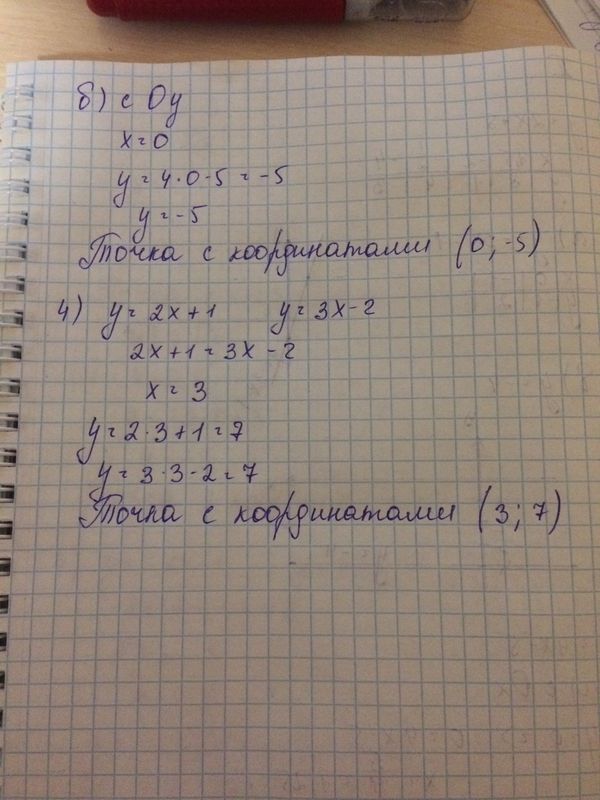 б) с Oy
x=0
y = 4·0-5 = -5
y = -5
Точка с координатами (0; -5)
4) y = 2x+1 y = 3x-2
2x+1 = 3x-2
x = 3
y = 2·3+1 = 7
y = 3·3-2 = 7
Точка с координатами (3; 7)